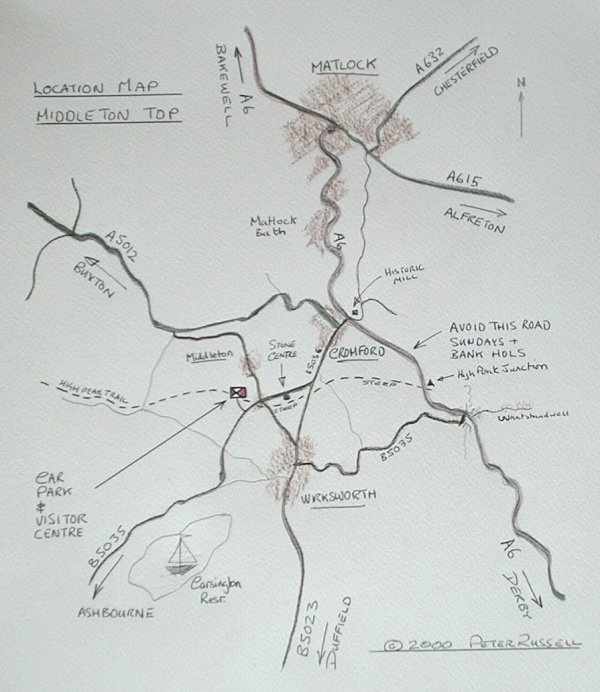 LOCATION MAP
MIDDLETON TOP
BAKEWELL
A6
MATLOCK
A632
CHESTERFIELD
N
A615
ALFRETON
Matlock
Bath
A6
A5012
BUXTON
HISTORIC
MILL
AVOID THIS ROAD
SUNDAYS +
BANK HOLS
High Peak Junction
Middleton
STONE
CENTRE
B5036
CROMFORD
STEEP
HIGH PEAK TRAIL
STEEP
Whatstandwell
B5035
CAR
PARK
&
VISITOR
CENTRE
WIRKSWORTH
B5035
ASHBOURNE
Carsington
Resr.
B5023
DUFFIELD
A6
DERBY
© 2000 PETER RUSSELL